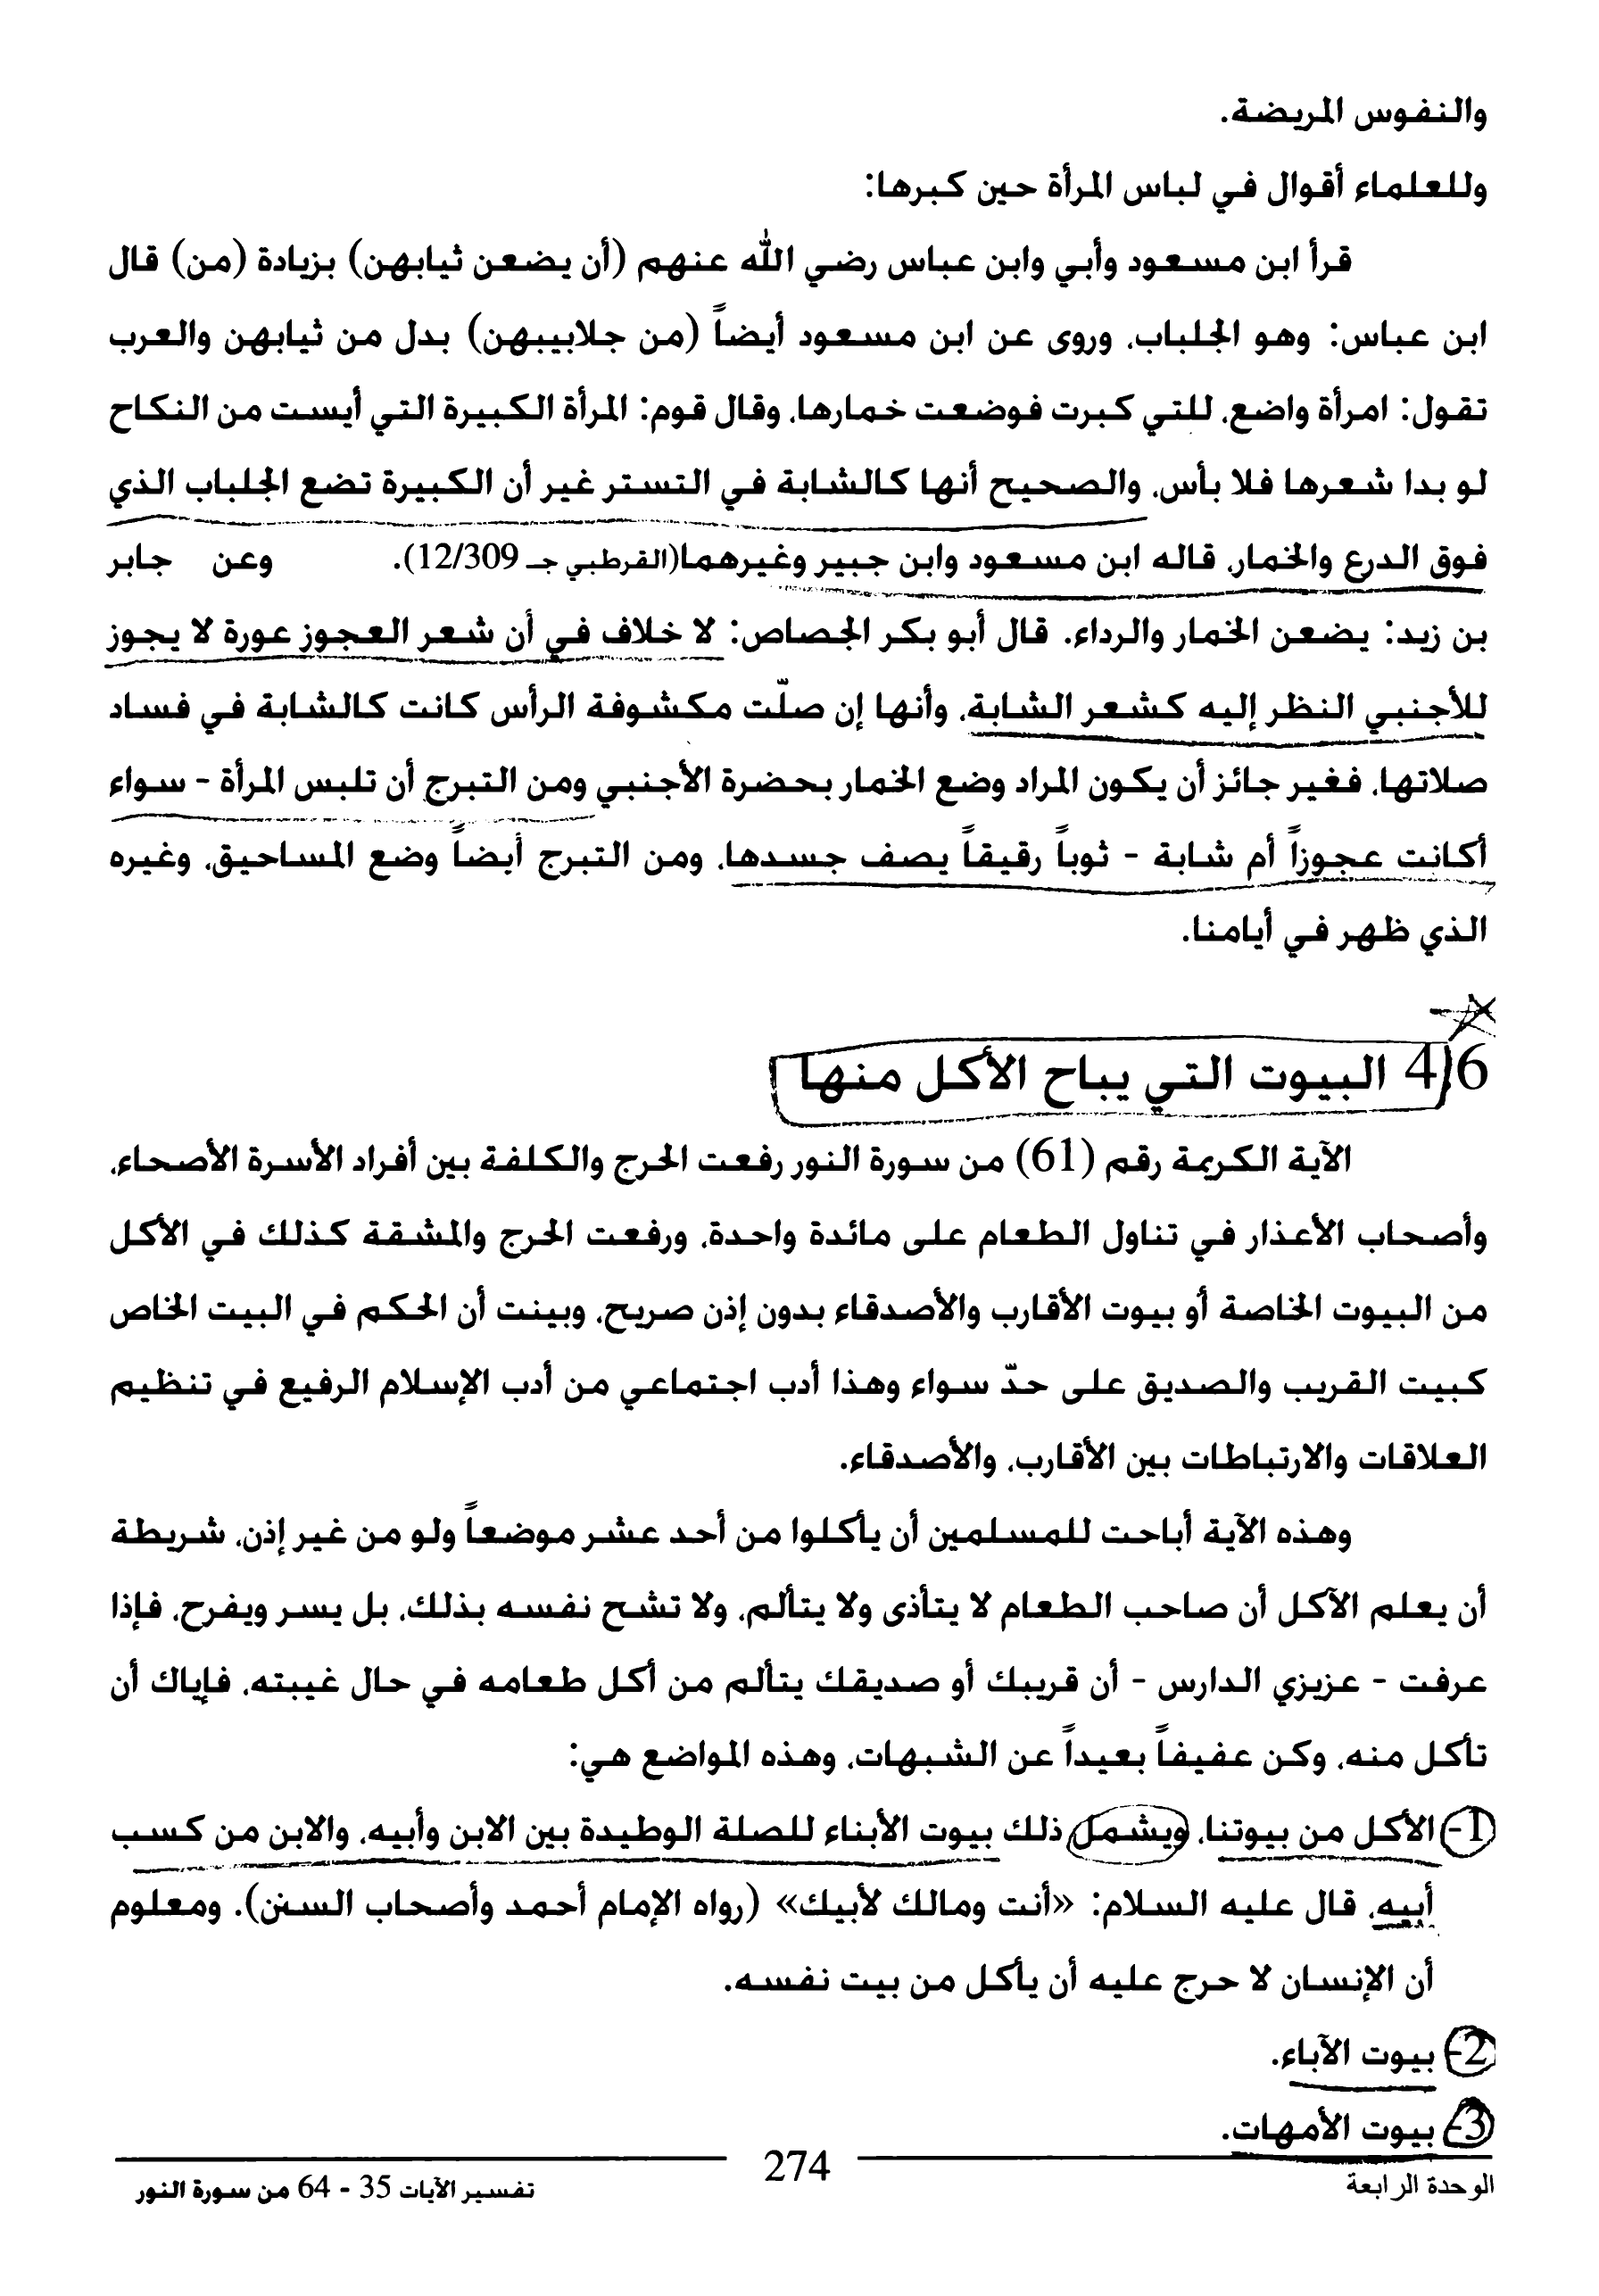 والنفوس المريضة.
وللعلماء أقوال في لباس المرأة حين كبرها:
قرأ ابن مسعود وأبي وابن عباس رضي الله عنهم (أن يضعن ثيابهن) بزيادة (من) قال
ابن عباس: وهو الجلباب، وروى عن ابن مسعود أيضاً (من جلابيبهن) بدل من ثيابهن والعرب
تقول: امرأة واضع، للتي كبرت فوضعت خمارها، وقال قوم: المرأة الكبيرة التي أيست من النكاح
لو بدا شعرها فلا بأس، والصحيح أنها كالشابة في التستر غير أن الكبيرة تضع الجلباب الذي
فوق الدرع والخمار، قاله ابن مسعود وابن جبير وغيرهما(القرطبي جـ 12/309). وعن جابر
بن زيد: يضعن الخمار والرداء. قال أبو بكر الجصاص: لا خلاف في أن شعر العجوز عورة لا يجوز
للأجنبي النظر إليه كشعر الشابة، وأنها إن صلّت مكشوفة الرأس كانت كالشابة في فساد
صلاتها، فغير جائز أن يكون المراد وضع الخمار بحضرة الأجنبي ومن التبرج أن تلبس المرأة - سواء
أكانت عجوزاً أم شابة - ثوباً رقيقاً يصف جسدها، ومن التبرج أيضاً وضع المساحيق، وغيره
الذي ظهر في أيامنا.
4/6 البيوت التي يباح الأكل منها
الآية الكريمة رقم (61) من سورة النور رفعت الحرج والكلفة بين أفراد الأسرة الأصحاء،
وأصحاب الأعذار في تناول الطعام على مائدة واحدة، ورفعت الحرج والمشقة كذلك في الأكل
من البيوت الخاصة أو بيوت الأقارب والأصدقاء بدون إذن صريح، وبينت أن الحكم في البيت الخاص
كبيت القريب والصديق على حدّ سواء وهذا أدب اجتماعي من أدب الإسلام الرفيع في تنظيم
العلاقات والارتباطات بين الأقارب، والأصدقاء.
وهذه الآية أباحت للمسلمين أن يأكلوا من أحد عشر موضعاً ولو من غير إذن، شريطة
أن يعلم الآكل أن صاحب الطعام لا يتأذى ولا يتألم، ولا تشح نفسه بذلك، بل يسر ويفرح، فإذا
عرفت - عزيزي الدارس - أن قريبك أو صديقك يتألم من أكل طعامه في حال غيبته، فإياك أن
تأكل منه، وكن عفيفاً بعيداً عن الشبهات، وهذه المواضع هي:
1- الأكل من بيوتنا، ويشمل ذلك بيوت الأبناء للصلة الوطيدة بين الابن وأبيه، والابن من كسب
أبيه، قال عليه السلام: «أنت ومالك لأبيك» (رواه الإمام أحمد وأصحاب السنن). ومعلوم
أن الإنسان لا حرج عليه أن يأكل من بيت نفسه.
2- بيوت الآباء.
3- بيوت الأمهات.
الوحدة الرابعة
274
تفسير الآيات 35 - 64 من سورة النور